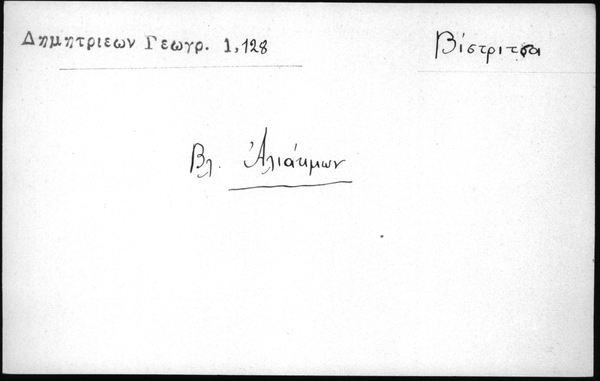 Δημητριεων Γεωγρ. 1,128
Βίστριτσα
Βλ. Ἁλιάκμων